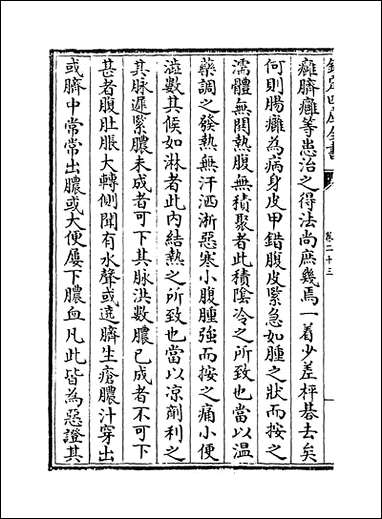 欽定四庫全書
卷二十三
癰臍癰等患治之得法尚庶幾焉一着少差枰碁去矣
何則腸癰為病身皮甲錯腹皮緊急如腫之狀而按之
濡體無閉熱腹無積聚者此積陰冷之所致也當以温
藥調之發熱無汗洒淅惡寒小腹腫强而按之痛小便
澁數其候如淋者此内結熱之所致也當以凉劑利之
其脉遲緊膿未成者可下其脉洪數膿已成者不可下
甚者腹肚脹大轉側聞有水聲或遶臍生瘡膿汁穿出
或臍中常常出膿或大便屢下膿血凡此皆為惡證其